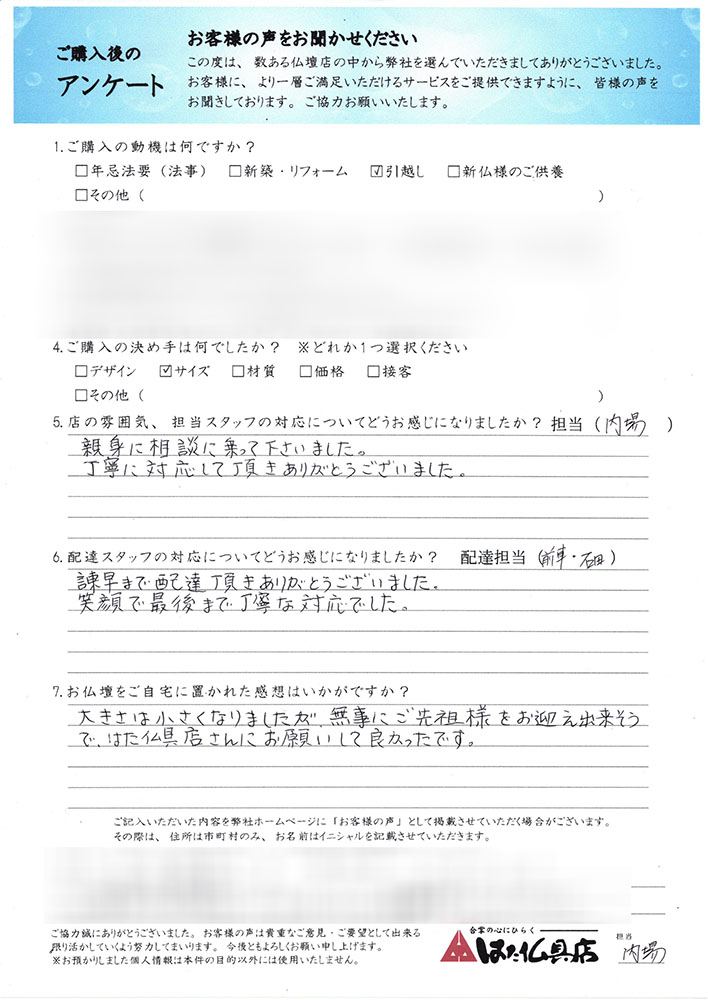 ご購入後の
アンケート
お客様の声をお聞かせください
この度は、数ある仏壇店の中から弊社を選んでいただきましてありがとうございました。
お客様に、より一層ご満足いただけるサービスをご提供できますように、皆様の声を
お聞きしております。ご協力お願いいたします。
1.ご購入の動機は何ですか？
□年忌法要（法事） □新築・リフォーム ☑引越し □新仏様のご供養
□その他（ ）
4.ご購入の決め手は何でしたか？ ※どれか1つ選択ください
□デザイン ☑サイズ □材質 □価格 □接客
□その他（ ）
5.店の雰囲気、担当スタッフの対応についてどうお感じになりましたか？担当（内場 ）
親身に相談に乗って下さいました。
丁寧に対応して頂きありがとうございました。
6.配達スタッフの対応についてどうお感じになりましたか？ 配達担当（前車・石田）
諫早まで配達頂きありがとうございました。
笑顔で最後まで丁寧な対応でした。
7.お仏壇をご自宅に置かれた感想はいかがですか？
大きさは小さくなりましたが、無事にご先祖様をお迎え出来そう
で、はた仏具店さんにお願いして良かったです。
ご記入いただいた内容を弊社ホームページに「お客様の声」として掲載させていただく場合がございます。
その際は、住所は市町村のみ、お名前はイニシャルを記載させていただきます。
ご協力誠にありがとうございました。お客様の声は貴重なご意見・ご要望として出来る
限り活かしていくよう努力してまいります。今後ともよろしくお願い申し上げます。
※お預かりしました個人情報は本件の目的以外には使用いたしません。
合掌の心にひらく
はた仏具店
担当
内場